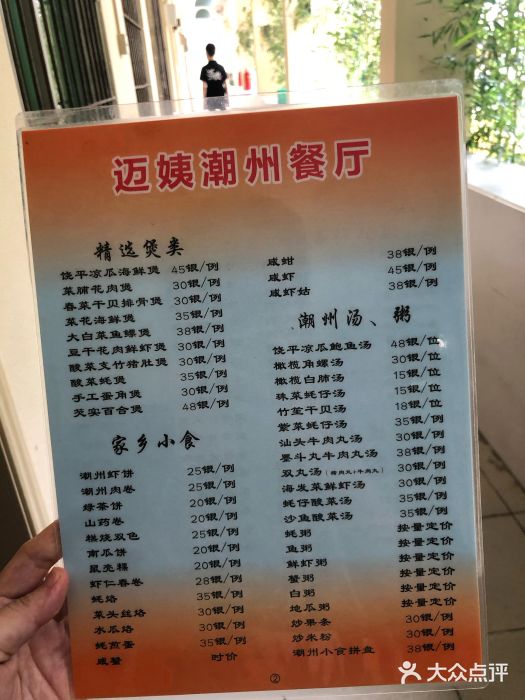 迈姨潮州餐厅
精选煲类
饶平凉瓜海鲜煲 45银/例
菜脯花肉煲 30银/例
春菜干贝排骨煲 30银/例
菜花海鲜煲 35银/例
大白菜鱼鳔煲 38银/例
豆干花肉鲜虾煲 30银/例
酸菜支竹猪肚煲 30银/例
酸菜蚝煲 35银/例
手工蛋角煲 30银/例
芡实百合煲 48银/例
家乡小食
潮州虾饼 25银/例
潮州肉卷 25银/例
绿茶饼 20银/例
山药卷 20银/例
糕烧双色 25银/例
南瓜饼 20银/例
鼠壳粿 20银/例
虾仁春卷 28银/例
蚝烙 35银/例
菜头丝烙 30银/例
水瓜烙 30银/例
蚝煎蛋 35银/例
咸蟹 时价
咸蚶 38银/例
咸虾 45银/例
咸虾姑 38银/例
潮州汤、粥
饶平凉瓜鲍鱼汤 48银/位
橄榄角螺汤 30银/位
橄榄白肺汤 15银/位
珠菜蚝仔汤 15银/位
竹笙干贝汤 18银/位
紫菜蚝仔汤 35银/例
汕头牛肉丸汤 30银/例
墨斗丸牛肉丸汤 38银/例
双丸汤 30银/例
海发菜鲜虾汤 30银/例
蚝仔酸菜汤 35银/例
沙鱼酸菜汤 35银/例
蚝粥 按量定价
鱼粥 按量定价
鲜虾粥 按量定价
蟹粥 按量定价
白粥 按量定价
地瓜粥 按量定价
炒果条 30银/例
炒米粉 30银/例
潮州小食拼盘 38银/例
②
大众点评